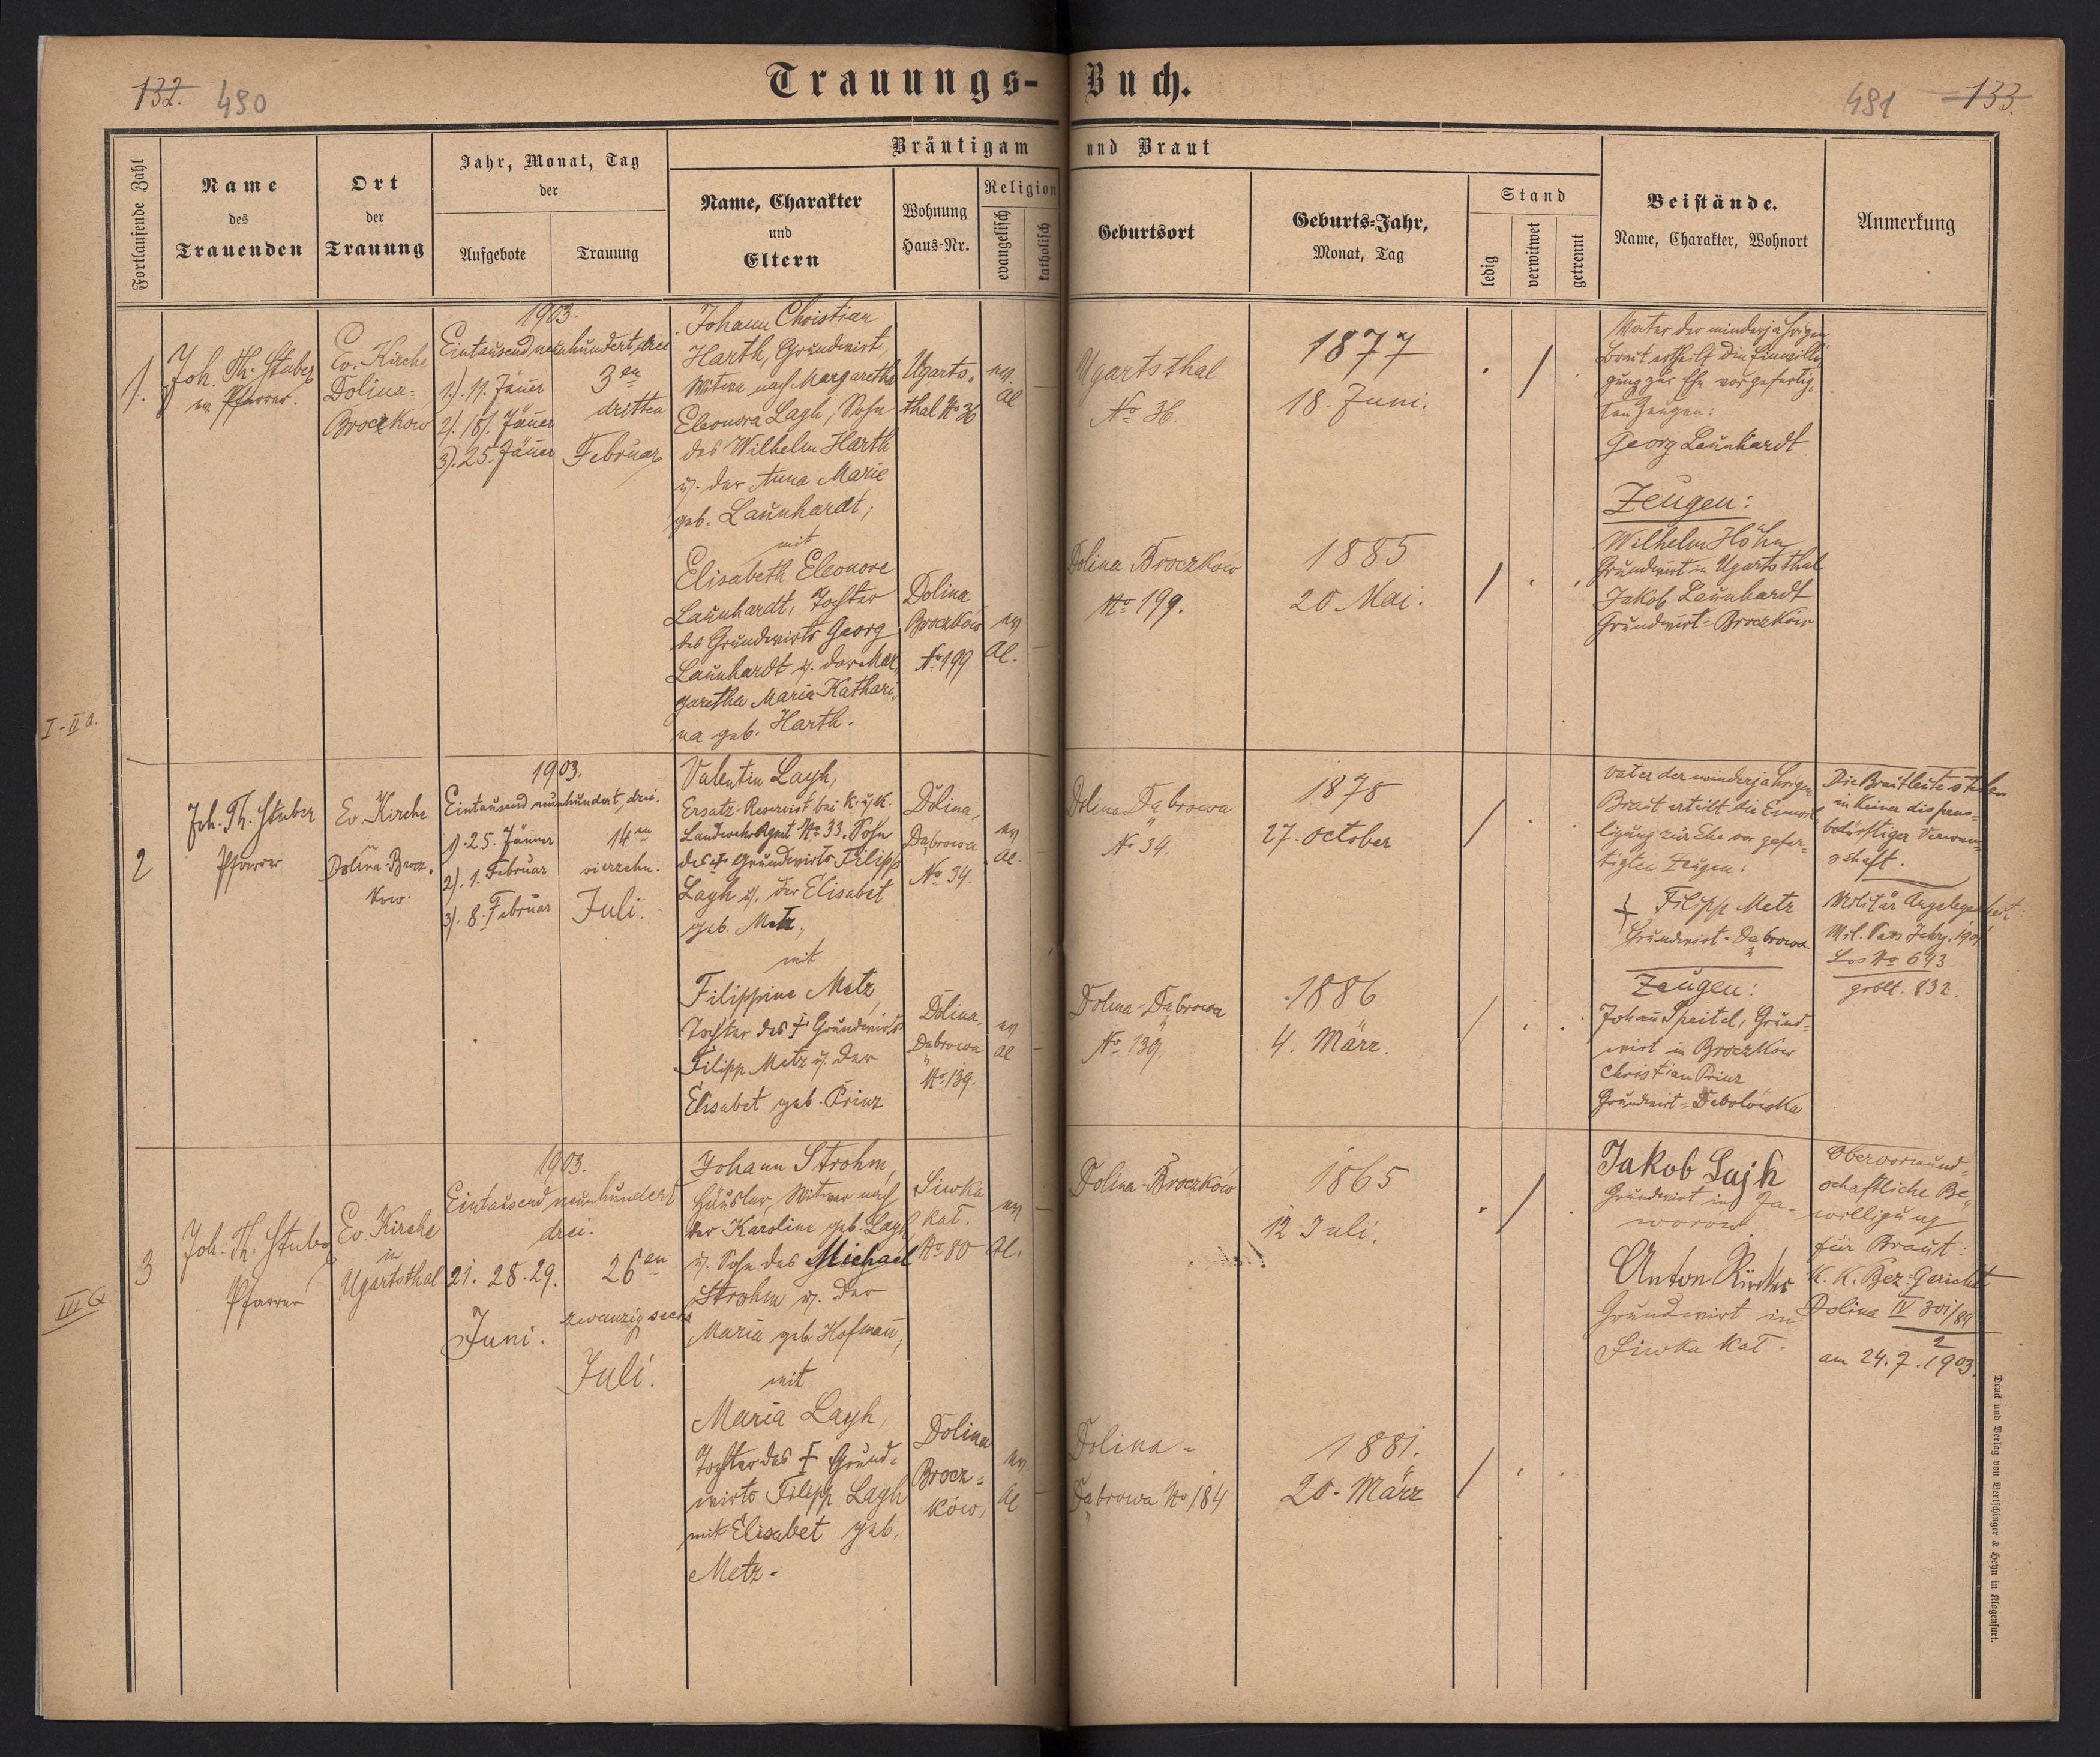 132. 490
Trauungs-Buch.
491 133.
Fortlaufende Zahl
Name
des
Trauenden
Ort
der
Trauung
Jahr, Monat, Tag
der
Aufgebote
Trauung
Bräutigam und Braut
Name, Charakter
und
Eltern
Wohnung
Haus-Nr.
Religion
evangelisch
katholisch
Geburtsort
Geburts-Jahr,
Monat, Tag
Stand
ledig
verwitwet
getrennt
Beistände.
Name, Charakter, Wohnort
Anmerkung
1.
Joh. Th. Stuber
ev. Pfarrer.
Ev. Kirche
Dolina-
Broczkow
1903.
Eintausendneunhundert drei
1.). 11. Jäner
2). 18. Jäner
3). 25. Jäner
3en
dritten
Februar
Johann Christian
Harth, Grundwirt,
Witwer nach Margaretha
Eleonora Lagh, Sohn
des Wilhelm Harth
u. der Anna Marie
geb. Launhardt;
mit
Elisabeth Eleonore
Launhardt, Tochter
des Grundwirts Georg
Launhardt u. der Mar-
garetha Maria Kathari-
na geb. Harth.
Ugarts-
thal No 36
ev.
Al
Dolina
Broczków
No 199
ev
Al.
Ugartsthal
No 36.
1877
18. Juni.
Dolina Broczkow
No 199.
1885
20 Mai.
Vater der minderjährigen
Braut ertheilt die Einwilli-
gung zur Ehe vor gefertig-
ten Zeugen:
Georg Launhardt
Zeugen:
Wilhelm Höhn
Grundwirt in Ugartsthal
Jakob Launhardt
Grundwirt-Broczkow
I-II Q.
2
Joh. Th. Stuber
Pfarrer
Ev. Kirche
in
Dolina-Brocz-
kow.
1903.
Eintausend neunhundert, drei.
1). 25. Jänner
2). 1. Februar
3). 8. Februar
14en
vierzehn.
Juli.
Valentin Lagh,
Ersatz-Reservist bei k. u. k.
Landwehr Rgmt No 33. Sohn
des † Grundwirts Filipp
Lagh u. der Elisabet
geb. Metz,
mit
Filippine Metz,
Tochter des † Grundwirts
Filipp Metz u. der
Elisabet geb. Prinz
Dolina,
Dąbrowa
No 34.
ev
Al.
Dolina
Dąbrowa
No 139.
ev
Al
Dolina Dąbrowa
No 34.
1878
27. October
Dolina-Dąbrowa
No 139.
1886
4. März.
Vater der minderjährigen
Braut erteilt die Einwil-
ligung zur Ehe vor gefer-
tigten Zeugen:
Filipp Metz
Grundwirt-Dąbrowa.
Zeugen:
Johann Speitel, Grund-
wirt in Broczkow
Christian Prinz
Grundwirt-Debolówka
Die Brautleute stehen
in keiner dispens-
bedürftiger Verwan-
schaft.
Militär Angelegenheit:
Mil. Pass Jahrg. 1901
Los No 643
grblt. 832.
3
Joh. Th. Stuber
Pfarrer
Ev. Kirche
in
Ugartsthal
1903.
Eintausend neunhundert
drei.
21. 28. 29.
Juni.
26en
zwanzig sechs
Juli.
Johann Strohm,
Häusler, Witwer nach
der Karoline geb. Lagh
u. Sohn des Michael
Strohm u. der
Maria geb. Hofmann,
mit
Maria Lagh,
Tochter des † Grund-
wirts Filipp Lagh
mit Elisabet geb.
Metz.
Siwka
Kat.
No 80
ev
Al.
Dolina
Brocz-
ków,
ev.
Al
Dolina-Broczków
1865
12 Juli.
Dolina-
Dąbrowa No 184
1881.
20. März
Jakob Lajh
Grundwirt in Ja-
worow
Anton
Grundwirt in
Siwka Kat.
Obervormund-
schaftliche Be-
willigung
für Braut:
K. K. Bez-Gericht
Dolina IV 301/89
2
am 24.7.1903.
III Q
Druck und Verlag von Bertschinger & Heyn in Klagenfurt.